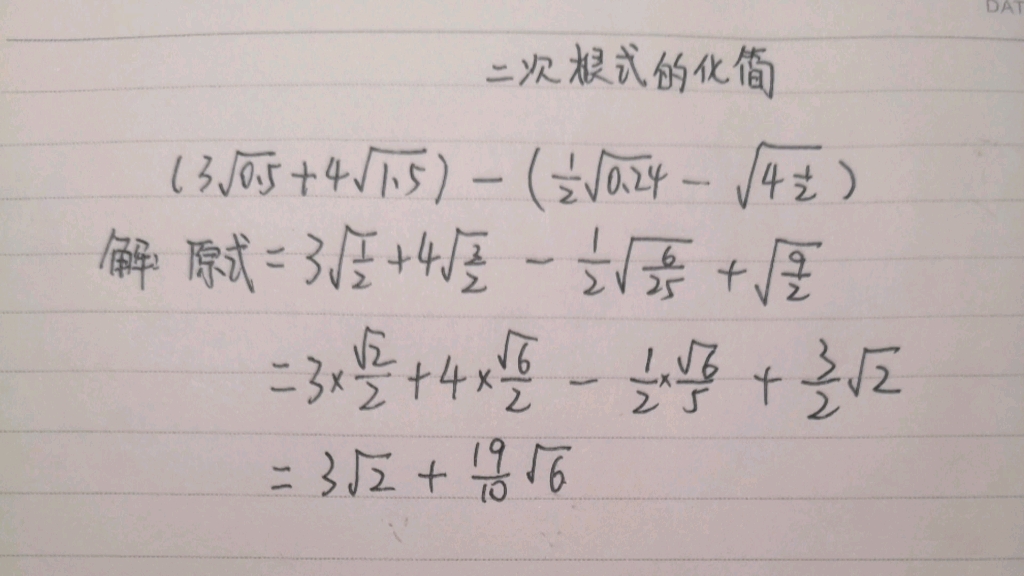 DAT
二次根式的化简
(3√0.5+4√1.5) - (½√0.24 - √4½)
解: 原式=3√(1/2)+4√(3/2) - 1/2√(6/25) + √(9/2)
=3×√2/2+4×√6/2 - 1/2×√6/5 + 3/2√2
= 3√2 + 19/10√6